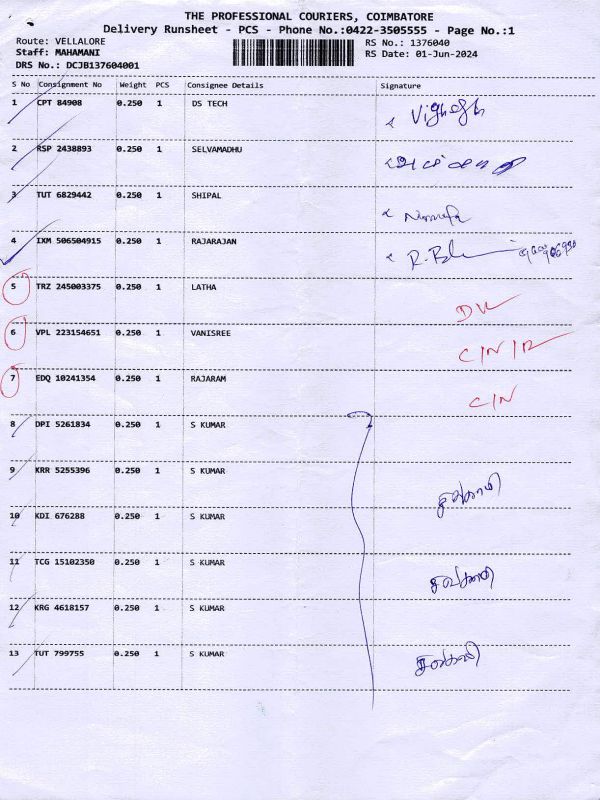 THE PROFESSIONAL COURIERS, COIMBATORE
Delivery Runsheet - PCS - Phone No.:0422-3505555 - Page No.:1
Route: VELLALORE
Staff: MAHAMANI
DRS No.: DCJB137604001
RS No.: 1376040
RS Date: 01-Jun-2024
S No Consignment No Weight PCS Consignee Details Signature
1 CPT 84908 0.250 1 DS TECH
2 RSP 2438893 0.250 1 SELVAMADHU
3 TUT 6829442 0.250 1 SHIPAL
4 IXM 506504915 0.250 1 RAJARAJAN
5 TRZ 245003375 0.250 1 LATHA
6 VPL 223154651 0.250 1 VANISREE
7 EDQ 10241354 0.250 1 RAJARAM C/N
8 DPI 5261834 0.250 1 S KUMAR
9 KRR 5255396 0.250 1 S KUMAR
10 KDI 676288 0.250 1 S KUMAR
11 TCG 15102350 0.250 1 S KUMAR
12 KRG 4618157 0.250 1 S KUMAR
13 TUT 799755 0.250 1 S KUMAR